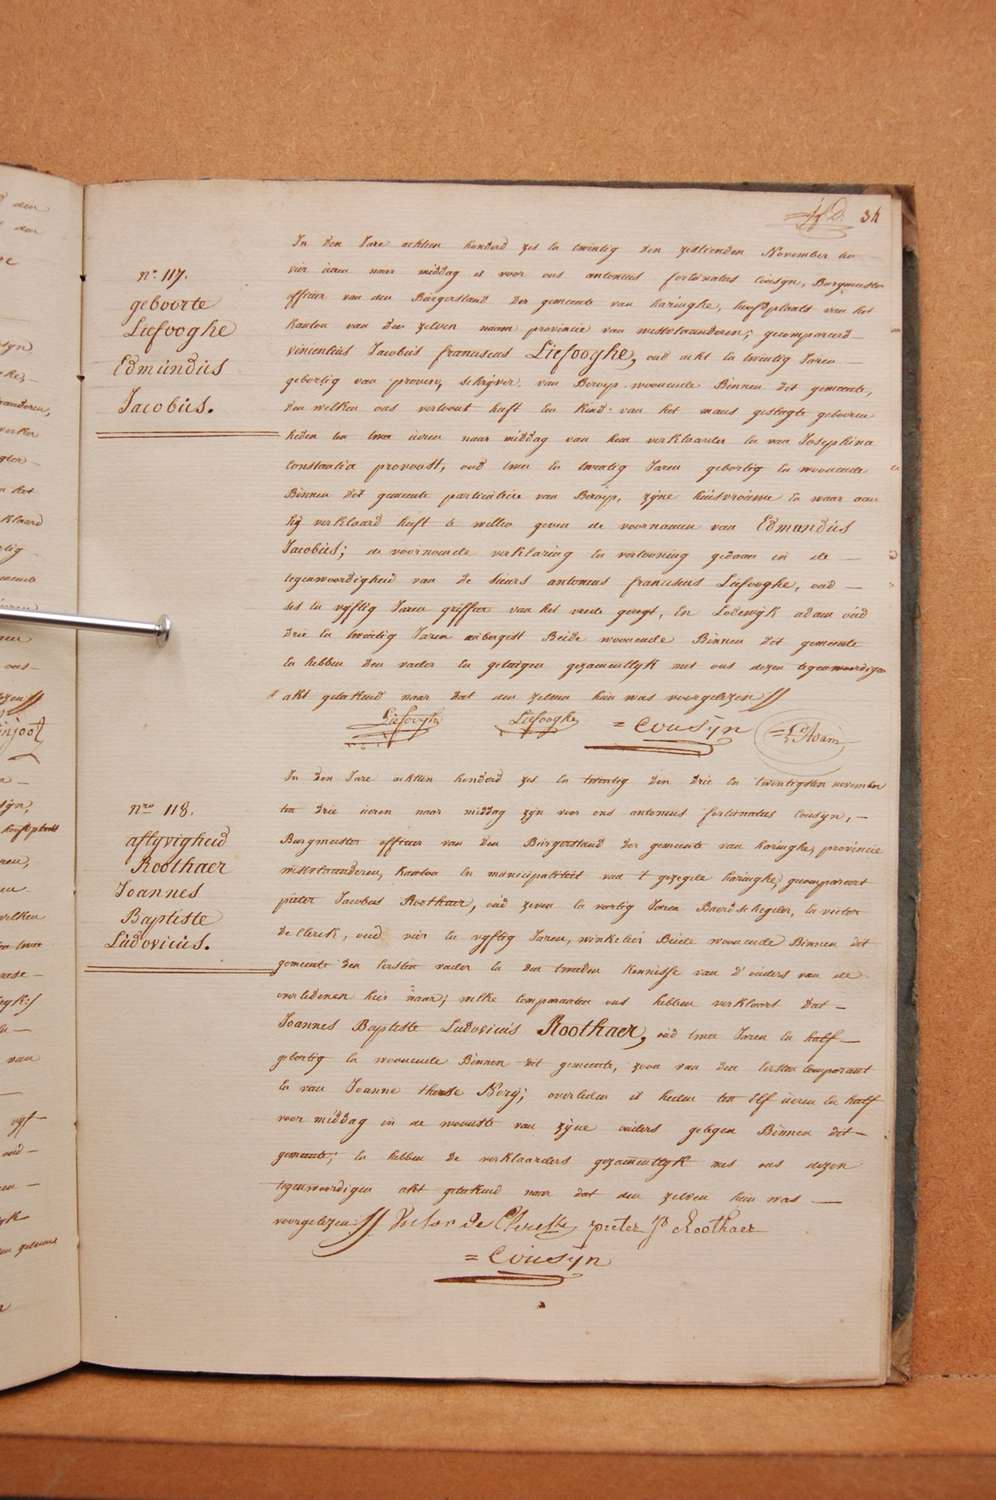 34
n.º 117.
geboorte
Liefooghe
Edmundús
Jacobús.
In den Jare achtien honderd zes en twintig den zestienden November ten
vier üeren naar middag is voor ons antonius fortunatus Coúsyn, Burgmeester
officier van den Búrgerstand der gemeente van haringhe, hoofdplaats van het
kanton van den zelven naam provincie van westvlaanderen; gecompareerd
vincentius Jacobus franciscus Liefooghe, oud acht en twintig Jaren
gebortig van proven, schrijver van Beroep woonende Binnen dit gemeente,
den welken ons vertoont heeft een kind van het mans geslagte geboren
heden ten twee üeren naar middag van hem verklaarder en van Josephina
Constantia provoost, oud twee en twintig Jaren gebortig en woonende
Binnen dit gemeente particuliere van Beroep, zijne húisvroúwe en waar aan
hij verklaard heeft te willen geven de voornaamen van Edmundús
Jacobús; de voornoemde verklaring en vertooning gedaan in de
tegenwoordigheid van de sieurs antonius franciscus Liefooghe, oud
zes en vyftig Jaren griffier van het vrede geregt, En Lodewyk adam oúd
drie en twintig Jaren Beide woonende Binnen dit gemeente
en hebben den vader en getuigen gezamentlyk met ons dezen tegenwoordigen
akt geteekend naar dat den zelven hún was voorgelezen //
Liefooghe Liefooghe = Coúsyn = L Adam
n.ro 118.
aflyvigheid
Roothaer
Joannes
Baptiste
Lúdovicús.
In den Jare achtien honderd zes en twintig den drie en twintigsten november
ten drie üeren naar middag zijn voor ons antonius fortunatus Coúsyn,
Burgmeester officier van den Búrgerstand der gemeente van haringhe, provincie
westvlaanderen, kanton en municipaliteit van 't gezegde haringhe, gecompareert
pieter Jacobus Roothaer, oúd zeven en veertig Jaren Baerdscheerder, en victor
De Clerck, oud vier en vyftig Jaren, winkelier Beide woonende Binnen dit
gemeente den eersten vader en den tweeden kennisse van d'oúders van de
overledenen hier naar; welke comparanten ons hebben verklaart dat
Joannes Baptiste Ludovicús Roothaer, oud twee Jaren en half
gebortig en woonende Binnen dit gemeente, zoon van den eersten comparant
en van Joanne therese Nory; overleden is heden ten Elf üeren en half
voor middag in de woonste van zijne oúders gelegen Binnen dit
gemeente; en hebben de verklaarders gezamentlyk met ons dezen
tegenwoordigen akt geteekend naar dat den zelven hún was
voorgelezen // Victor de Clerck pieter J.b Roothaer
= Coúsyn